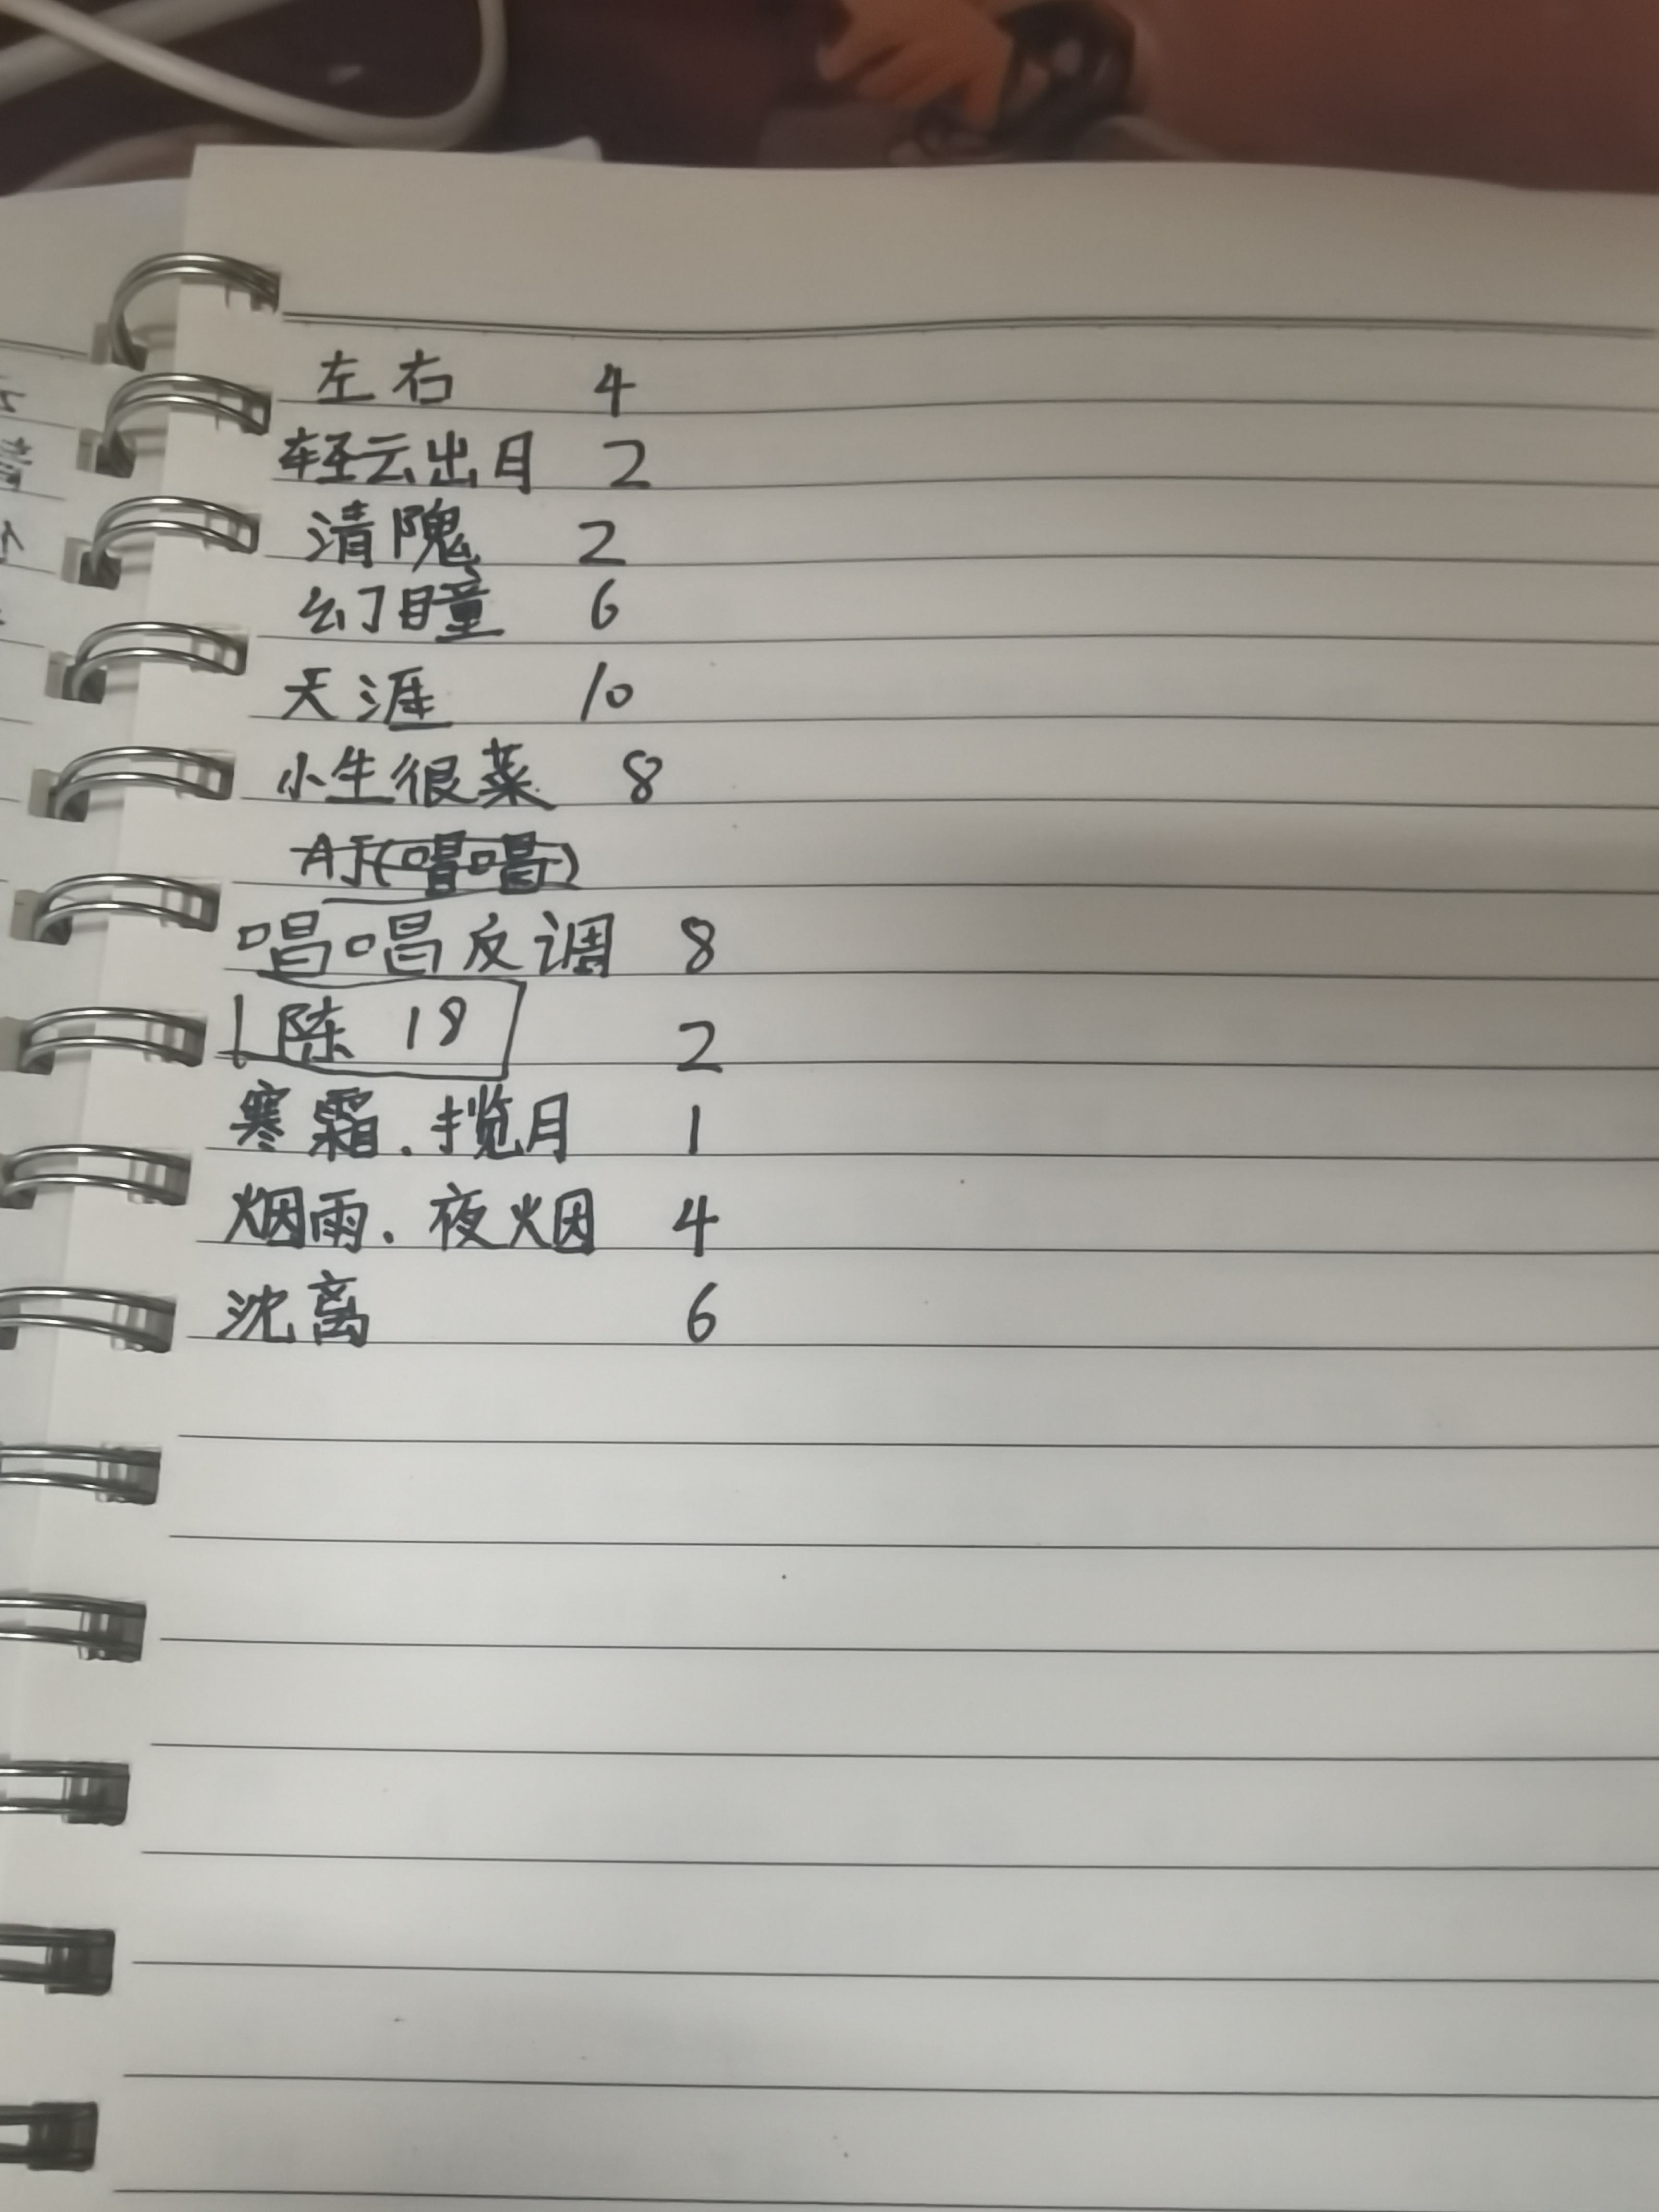 左右 4
轻云出月 2
清隗 2
幻瞳 6
天涯 10
小生很菜 8
AJ(唱唱)
唱唱反调 8
陈 18 2
寒霜.揽月 1
烟雨.夜烟 4
沈离 6